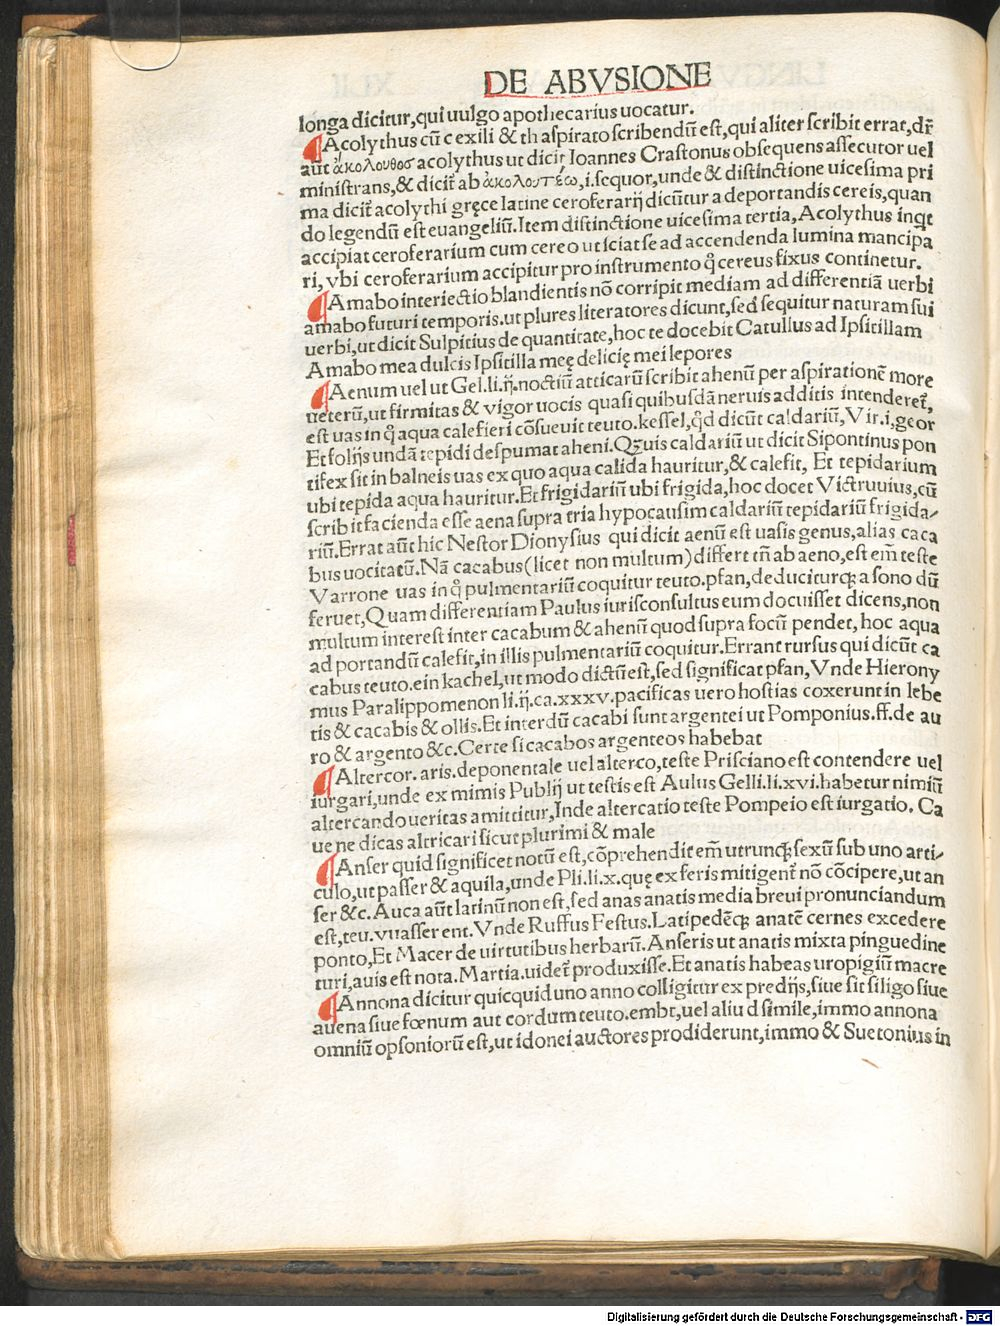 DE ABVSIONE
longa dicitur,qui uulgo apothecarius uocatur.
¶Acolythus cū c exili & th aſpirato ſcribendū eſt,qui aliter ſcribit errat,dr̄
aūt ἀκολουθοσ acolythus ut dicit Ioannes Craſtonus obſequens aſſecutor uel
miniſtrans,& dicit̄ ab ἀκολουτέω,.i.ſequor,unde & diſtinctione uiceſima pri
ma dicit̄ acolythi gręce latine ceroferarij dicūtur a deportandis cereis,quan
do legendū eſt euangeliū.Item diſtinctione uiceſima tertia,Acolythus inqt
accipiat ceroferarium cum cereo ut ſciat ſe ad accendenda lumina mancipa
ri,vbi ceroferarium accipitur pro inſtrumento q̊ cereus fixus continetur.
¶Amabo interiectio blandientis nō corripit mediam ad differentiā uerbi
amabo futuri temporis.ut plures literatores dicunt,ſed ſequitur naturam ſui
uerbi,ut dicit Sulpitius de quantitate,hoc te docebit Catullus ad Ipſitillam
Amabo mea dulcis Ipſitilla meę delicię mei lepores
¶Aenum uel ut Gel.li.ij.noctiū atticarū ſcribit ahenū per aſpirationē more
ueterū,ut firmitas & vigor uocis quaſi quibuſdā neruis additis intenderet̄,
eſt uas in q̊ aqua calefieri cōſueuit teuto.keſſel,q̊d dicūt caldariū,Vir.i,geor
Et folijs undā tepidi deſpumat aheni.Qȝuis caldariū ut dicit Sipontinus pon
tifex ſit in balneis uas ex quo aqua calida hauritur,& calefit, Et tepidarium
ubi tepida aqua hauritur.Et frigidariū ubi frigida,hoc docet Victruuius,cū
ſcribit facienda eſſe aena ſupra tria hypocauſim caldariū tepidariū frigida-
riū.Errat aūt hic Neſtor Dionyſius qui dicit aenū eſt uaſis genus,alias caca
bus uocitatū.Nā cacabus(licet non multum)differt tn̄ ab aeno,eſt em̄ teſte
Varrone uas in q̊ pulmentariū coquitur teuto.pfan,deduciturqȝ a ſono dū
feruet,Quam differentiam Paulus iuriſconſultus eum docuiſſet dicens,non
multum intereſt inter cacabum & ahenū quod ſupra focū pendet, hoc aqua
ad portandū calefit,in illis pulmentariū coquitur.Errant rurſus qui dicūt ca
cabus teuto.ein kachel,ut modo dictū eſt,ſed ſignificat pfan,Vnde Hierony
mus Paralippomenon li.ij.ca.xxxv.pacificas uero hoſtias coxerunt in lebe
tis & cacabis & ollis.Et interdū cacabi ſunt argentei ut Pomponius.ff.de au
ro & argento &c.Certe ſi cacabos argenteos habebat
¶Altercor.aris.deponentale uel alterco,teſte Priſciano eſt contendere uel
iurgari,unde ex mimis Publij ut teſtis eſt Aulus Gelli.li.xvi.habetur nimiū
altercando ueritas amittitur,Inde altercatio teſte Pompeio eſt iurgatio. Ca
ue ne dicas altricari ſicut plurimi & male
¶Anſer quid ſignificet notū eſt,cōprehendit em̄ utrunqȝ ſexū ſub uno arti-
culo,ut paſſer & aquila,unde Pli.li.x.quę ex feris mitigent̄ nō cōcipere,ut an
ſer &c.Auca aūt latinū non eſt,ſed anas anatis media breui pronunciandum
eſt,teu.vuaſſer ent.Vnde Ruffus Feſtus.Latipedēqȝ anatē cernes excedere
ponto,Et Macer de uirtutibus herbarū.Anſeris ut anatis mixta pinguedine
turi,auis eſt nota.Martia.uidet̄ produxiſſe.Et anatis habeas uropigiū macre
¶Annona dicitur quicquid uno anno colligitur ex predijs,ſiue ſit ſiligo ſiue
auena ſiue fœnum aut cordum teuto.embt,uel aliud ſimile,immo annona
omniū opſoniorū eſt,ut idonei auctores prodiderunt,immo & Suetonius in
Digitalisierung gefördert durch die Deutsche Forschungsgemeinschaft - DFG